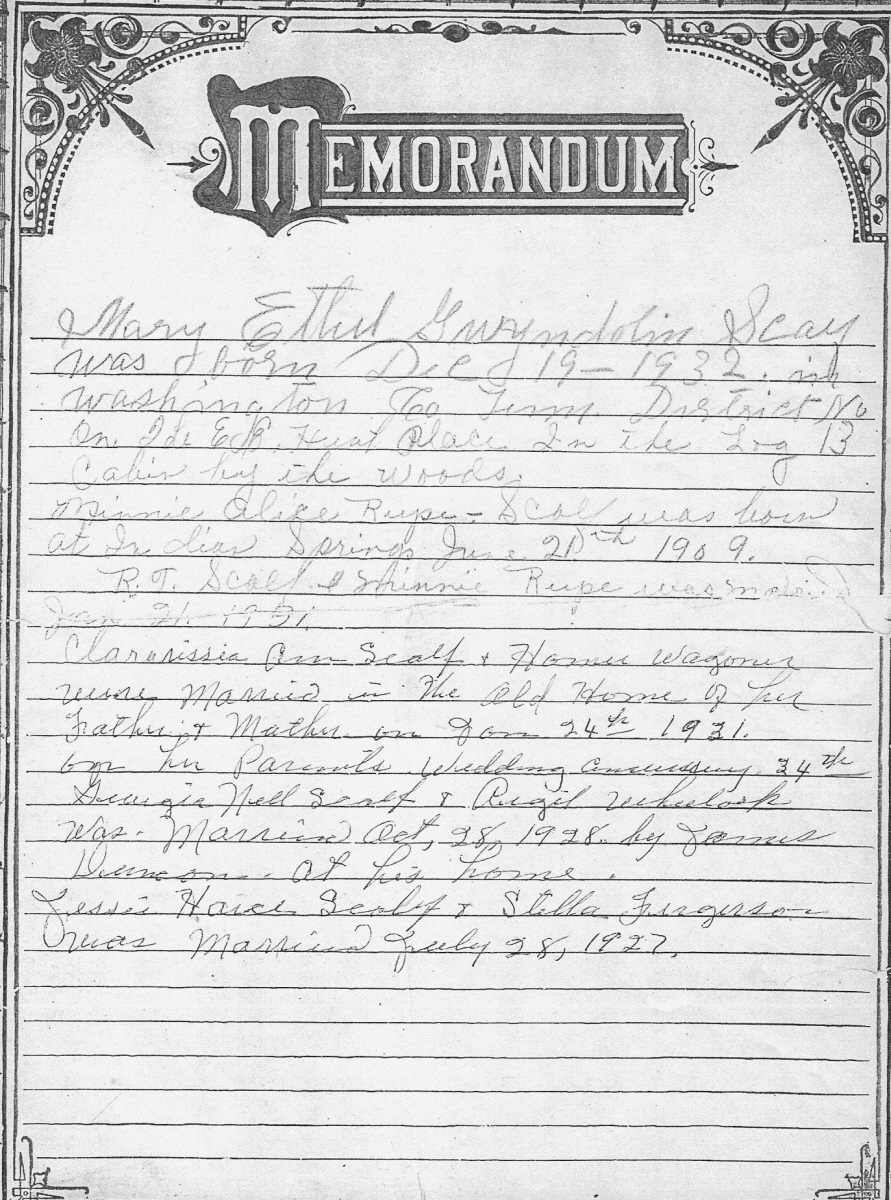 MEMORANDUM
Mary Ethel Gwyndolin Scalf
was born Dec 19 - 1932. in
Washington Co Tenn. District No
On The E.R. Hunt Place In the Log 13
Cabin by the Woods.
Minnie Alice Rupe - Scalf was born
at Indian Springs June 21th 1909.
R.T. Scalf & Minnie Rupe was
Jan 21 1931
Clararissia Ann Scalf & Homer Wagoner
were Married in The Old Home of her
Father & Mother on Jan 24th 1931.
on her Parents Wedding 34th
Georgia Nell Scalf & Rugil Wheelock
Was. Married Oct, 28, 1928. by James
Duncan. at his home.
Jessie Scalf & Stella Furgerson
was Married July 28, 1927.